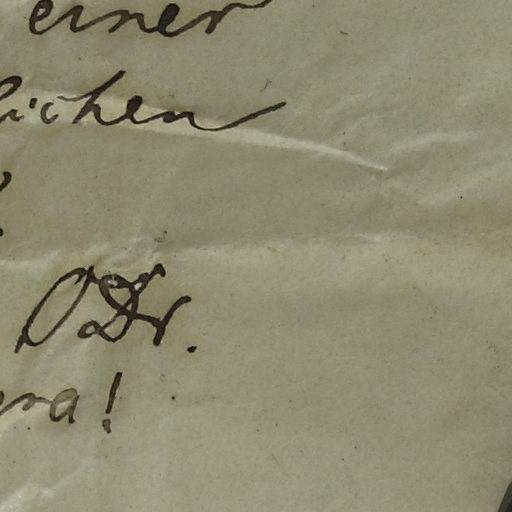 einer
lichen
ODr.
era!